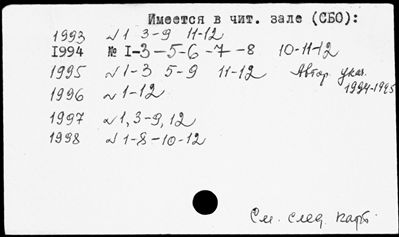 Имеется в чит. зале (СБО):
1993 №1 3-9 11-12
1994 № 1-3-5-6-7-8 10-11-12
1995 №1-3 5-9 11-12 Автор. указ.
1994-1995
1996 №1-12
1997 №1,3-9,12
1998 №1-8-10-12
См. след. карт.